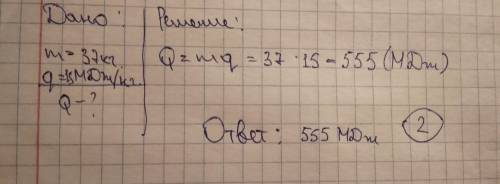 Дано:
m = 37кг.
q = 15МДж/кг.
Q - ?
Решение:
Q = mq = 37 · 15 = 555 (МДж)
Ответ: 555 МДж
2